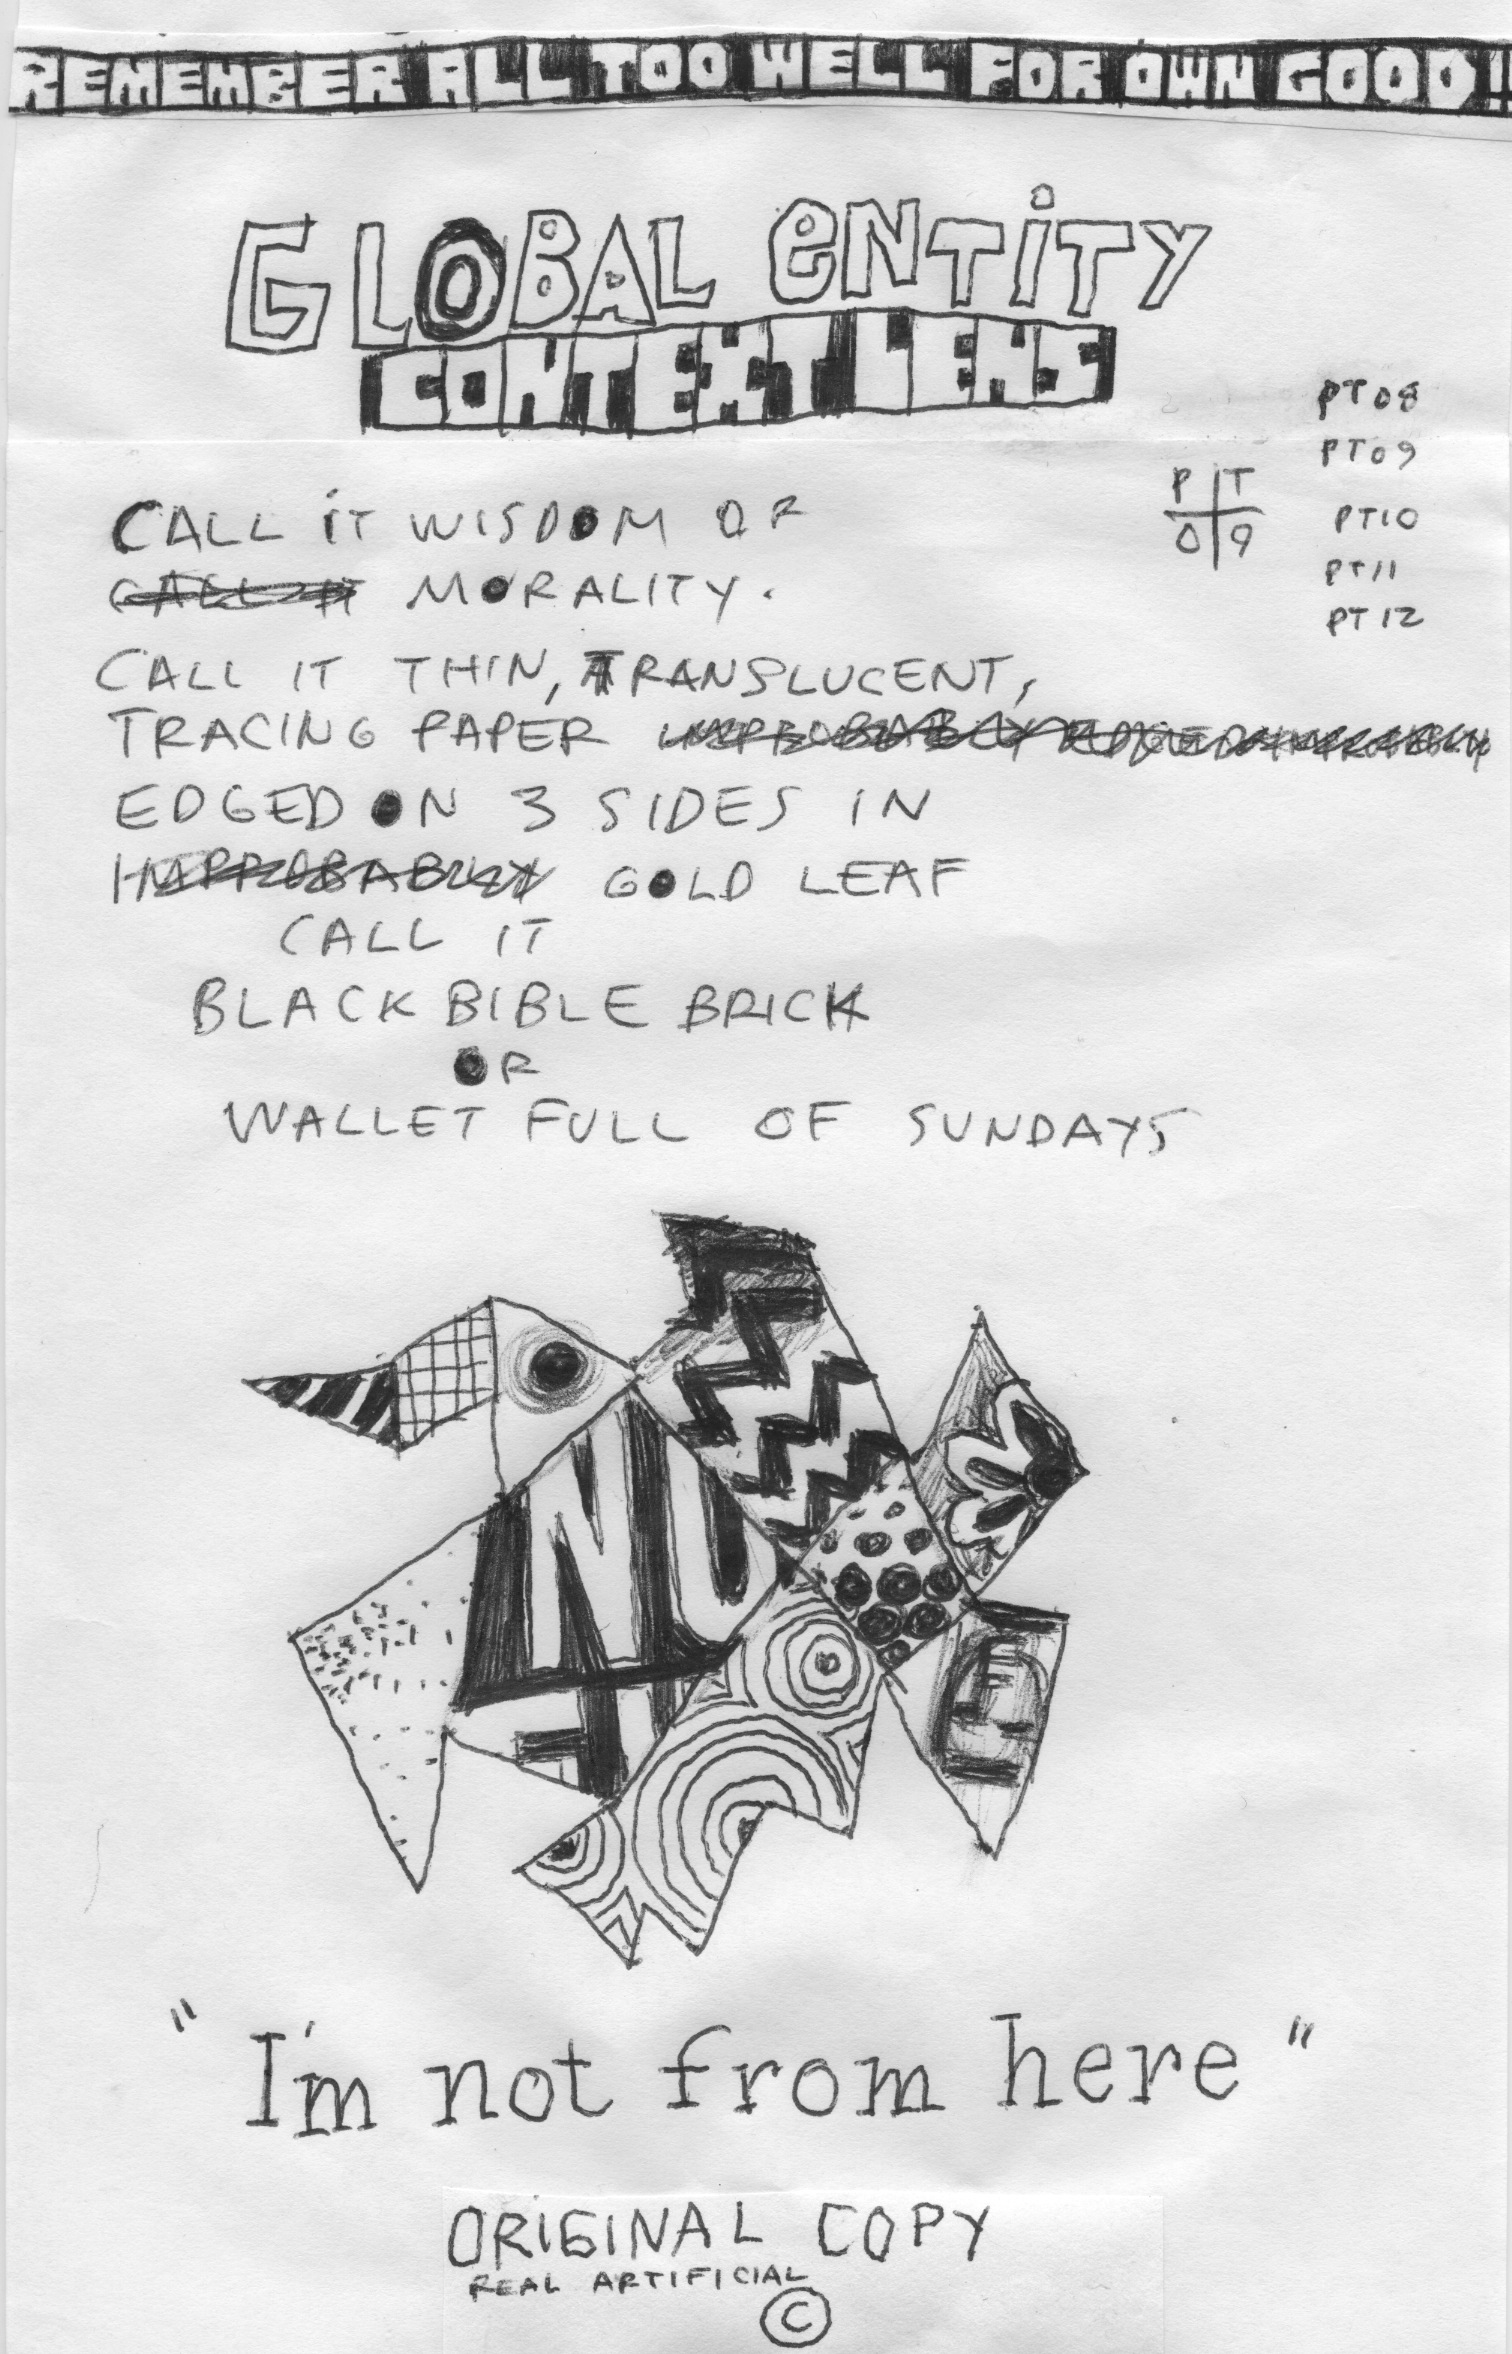 REMEMBER ALL TOO WELL FOR OWN GOOD!!
GLOBAL eNTiTY
CONTEXT LENS
PT08
PT09
PT10
PT11
PT12
P T
0 9
CALL iT WISDOM OR
CALL IT MORALITY.
CALL IT THIN, TRANSLUCENT,
TRACING PAPER IMPROBABLY EDGED
EDGED ON 3 SIDES IN
IMPROBABLY GOLD LEAF
CALL IT
BLACK BIBLE BRICK
OR
WALLET FULL OF SUNDAYS
NU
"I'm not from here"
ORIGINAL COPY
REAL ARTIFICIAL
©